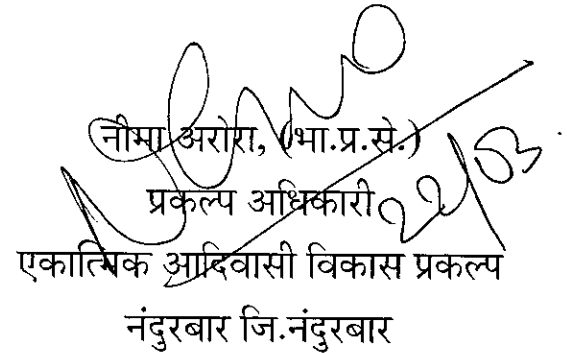 नीमा अरोरा, (भा.प्र.से.)
प्रकल्प अधिकारी
22/03
एकात्मिक आदिवासी विकास प्रकल्प
नंदुरबार जि.नंदुरबार